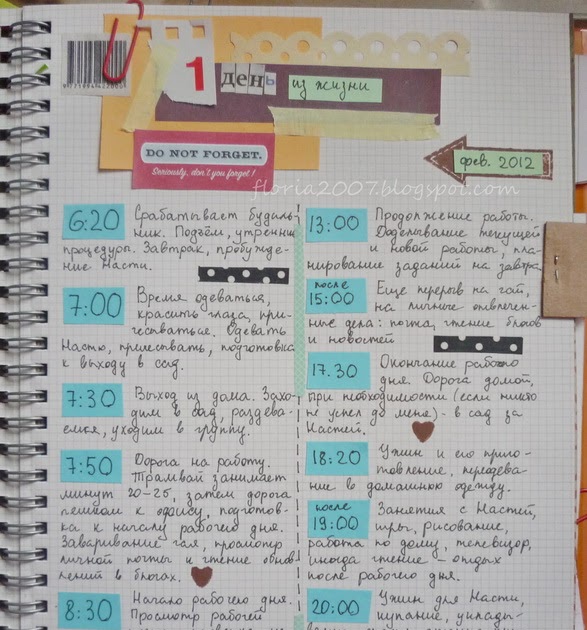 9771894422000
1
день
из жизни
DO NOT FORGET.
Seriously, don't you forget!
фев. 2012
floria2007.blogspot.com
6:20 Срабатывает будиль-
ник. Подъём, утренние
процедуры. Завтрак, пробужде-
ние Насти.
7:00 Время одеваться,
красить глаза, при-
чесываться. Одевать
Настю, причесывать, подготовка
к выходу в сад.
7:30 Выход из дома. Захо-
дим в сад, раздева-
емся, уходим в группу.
7:50 Дорога на работу.
Трамвай занимает
минут 20-25, затем дорога
пешком к офису, подготов-
ка к началу рабочего дня.
Заваривание чая, просмотр
личной почты и чтение обнов
лений в блогах.
8:30 Начало рабочего дня.
Просмотр рабочей
13:00 Продолжение работы.
Доделывание текущей
и новой работы, пла-
нирование заданий на завтра.
после
15:00 Еще перерыв на чай,
на личные отвлечен-
ные дела: почта, чтение блогов
и новостей
17.30 Окончание рабочего
дня. Дорога домой,
при необходимости (если никто
не успел до меня) - в сад за
Настей.
18:20 Ужин и его приго-
товление, переодева-
ние в домашнюю одежду.
после
19:00 Занятия с Настей,
игры, рисование,
работа по дому, телевизор,
иногда чтение - отдых
после рабочего дня.
20:00 Ужин для Насти,
купание, уклады-